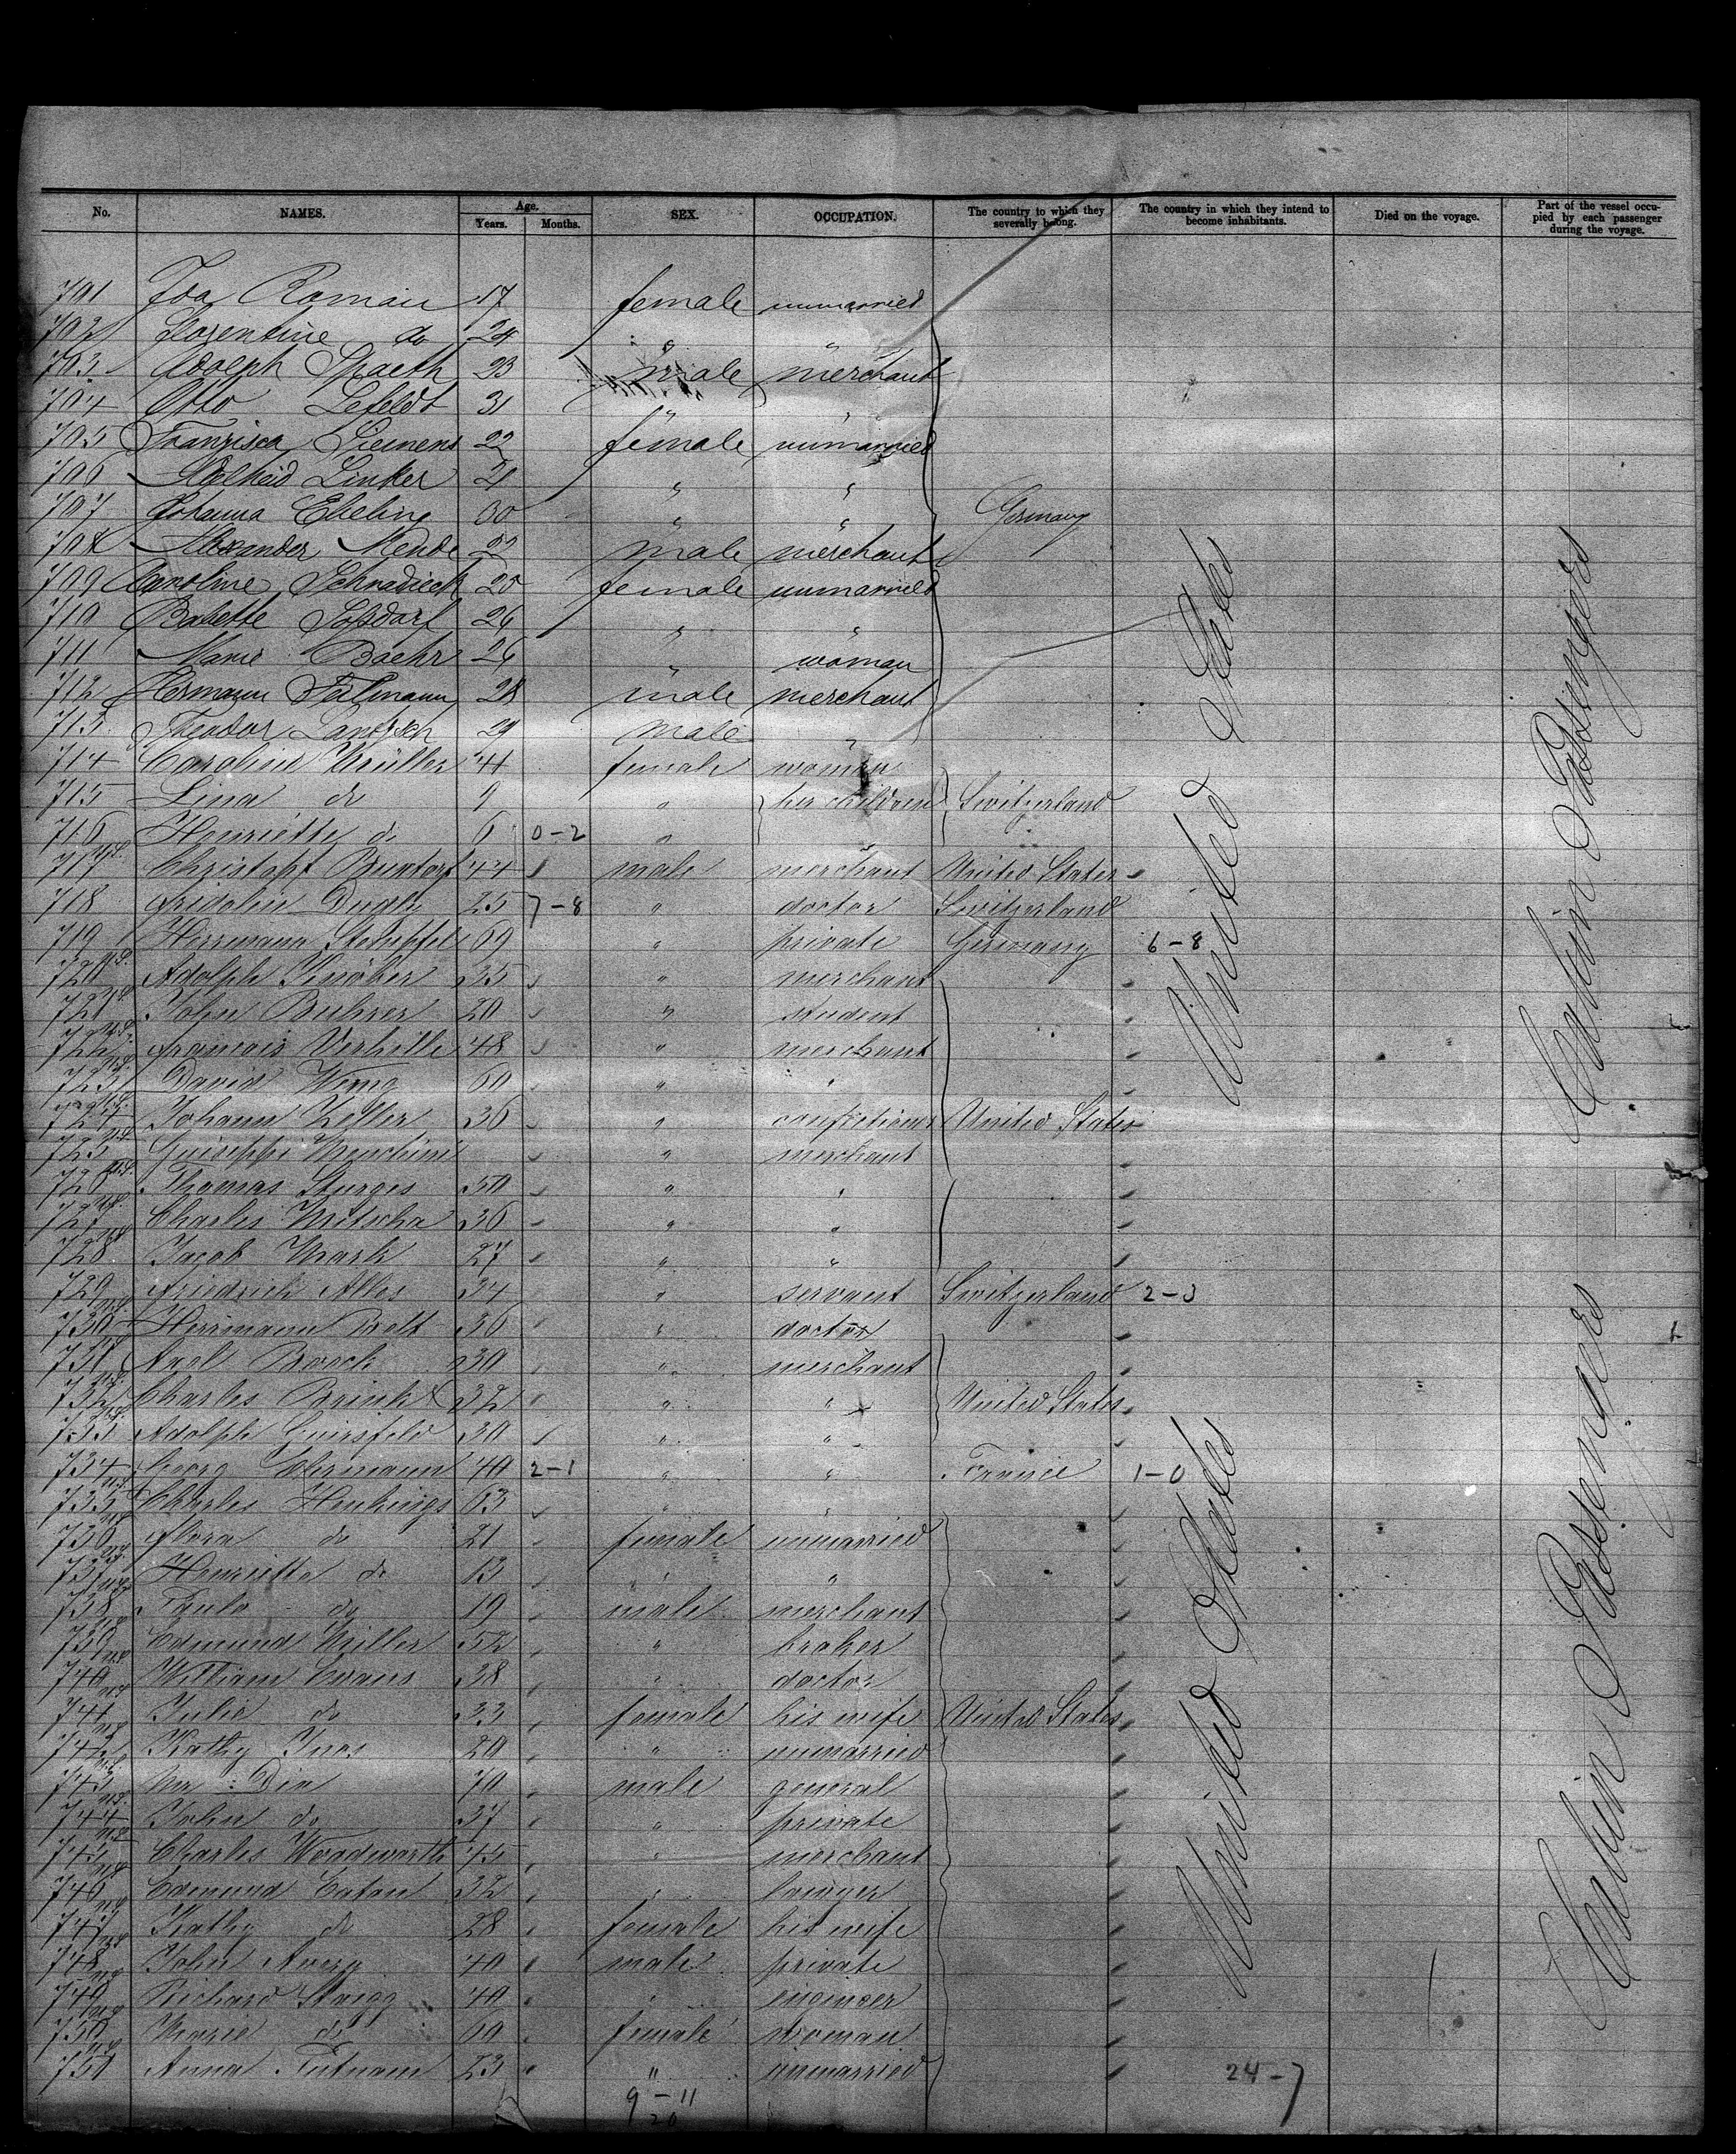 No. NAMES. Age. Years. Months. SEX. OCCUPATION. The country to which they severally belong. The country in which they intend to become inhabitants. Died on the voyage. Part of the vessel occupied by each passenger during the voyage.
701 Ida Romain 17 female unmarried
702 Florentine do 24 " "
703 Adolph Spaeth 23 male merchant
704 Otto Lefeldt 31 " "
705 Franzisca Siemens 22 female unmarried
706 Adelheid Linker 21 " "
707 Johanna Ebeling 30 " " Germany
708 Alexander Mende 22 male merchant
709 Caroline Schnadieck 25 female unmarried
710 Babette 26 " "
711 Marie Baehr 26 " woman
712 Hermann 28 male merchant
713 Theodor 29 male "
714 Caroline Müller 41 female woman
715 Lina do 9 " her children Switzerland
716 Henriette do 6 0-2 "
717 Christoph Buntorf 44 male merchant United States
718 Fridolin 25 7-8 " doctor Switzerland
719 Herrmann 69 " private Germany 6-8
720 Adolph 35 " merchant
721 John Buhrer 20 " student
722 Francois Verhille 48 " merchant
723 David 60 " "
724 Johann Zeller 36 " United States
725 " merchant
726 Thomas Sturges 50 " "
727 Charles Nitscha 36 " "
728 Jacob Mark 27 " "
729 Friedrich Alles 34 " servant Switzerland 2-3
730 Herrmann Bolt 36 " doctor
731 Axel 30 " merchant
732 Charles Brink 32 " " United States
733 Adolph 30 " "
734 Georg 40 2-1 " " France 1-0
735 Charles Henkings 63 " "
736 Flora do 21 female unmarried
737 Henrietta do 13 " "
738 Paulo do 19 male merchant
739 Edmund Miller 52 " broker
740 William Evans 38 " doctor
741 Julie do 33 female his wife United States
742 Kathy 20 " unmarried
743 Mr Dix 70 male general
744 John do 37 " private
745 Charles Woodworth 45 " merchant
746 Edmund Eaton 32 " lawyer
747 Kathy do 28 female his wife
748 John Avery 40 male private
749 Richard 40 " engineer
750 Marie do 60 female woman
751 Anna Putnam 23 " unmarried
9-11
20
24-7
United States
United States
Cabin Passengers
Cabin Passengers